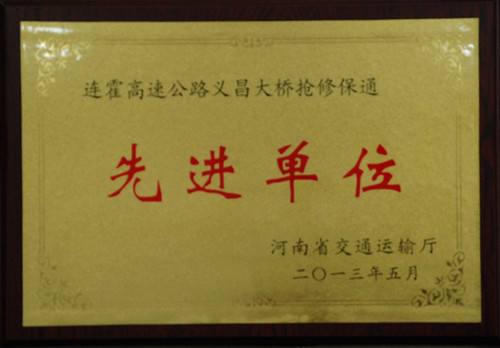 连霍高速公路义昌大桥抢修保通
先进单位
河南省交通运输厅
二〇一三年五月